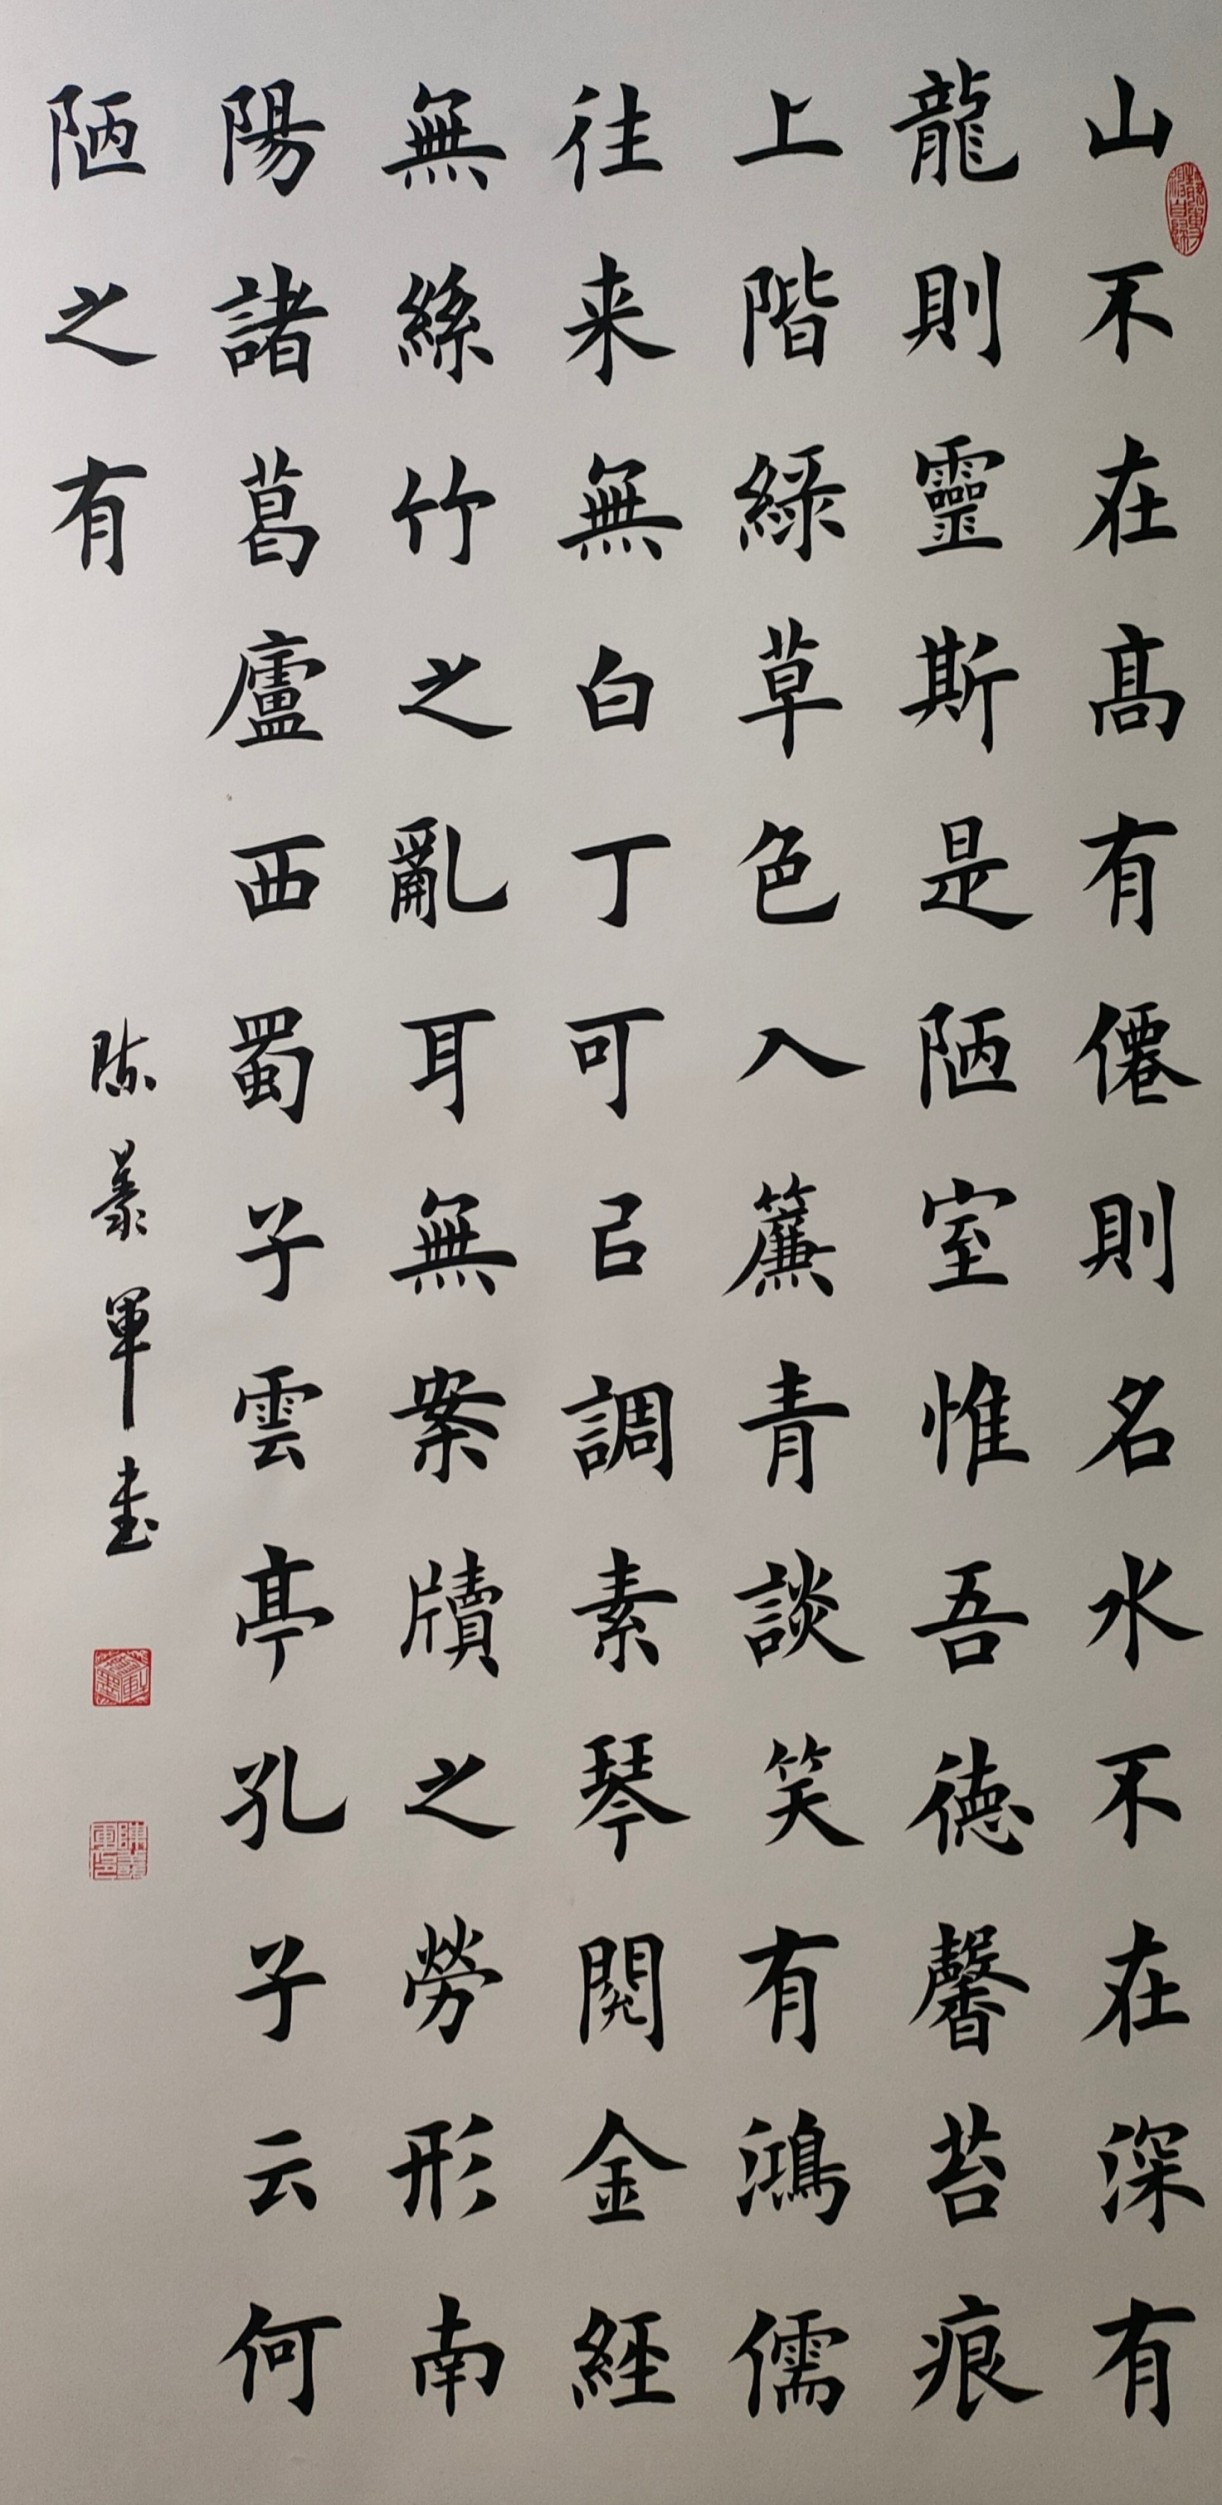 山不在高有僊則名水不在深有
龍則靈斯是陋室惟吾德馨苔痕
上階綠草色入簾青談笑有鴻儒
往来無白丁可㠯調素琴閱金經
無絲竹之亂耳無案牘之勞形南
陽諸葛廬西蜀子雲亭孔子云何
陋之有
陈義軍书